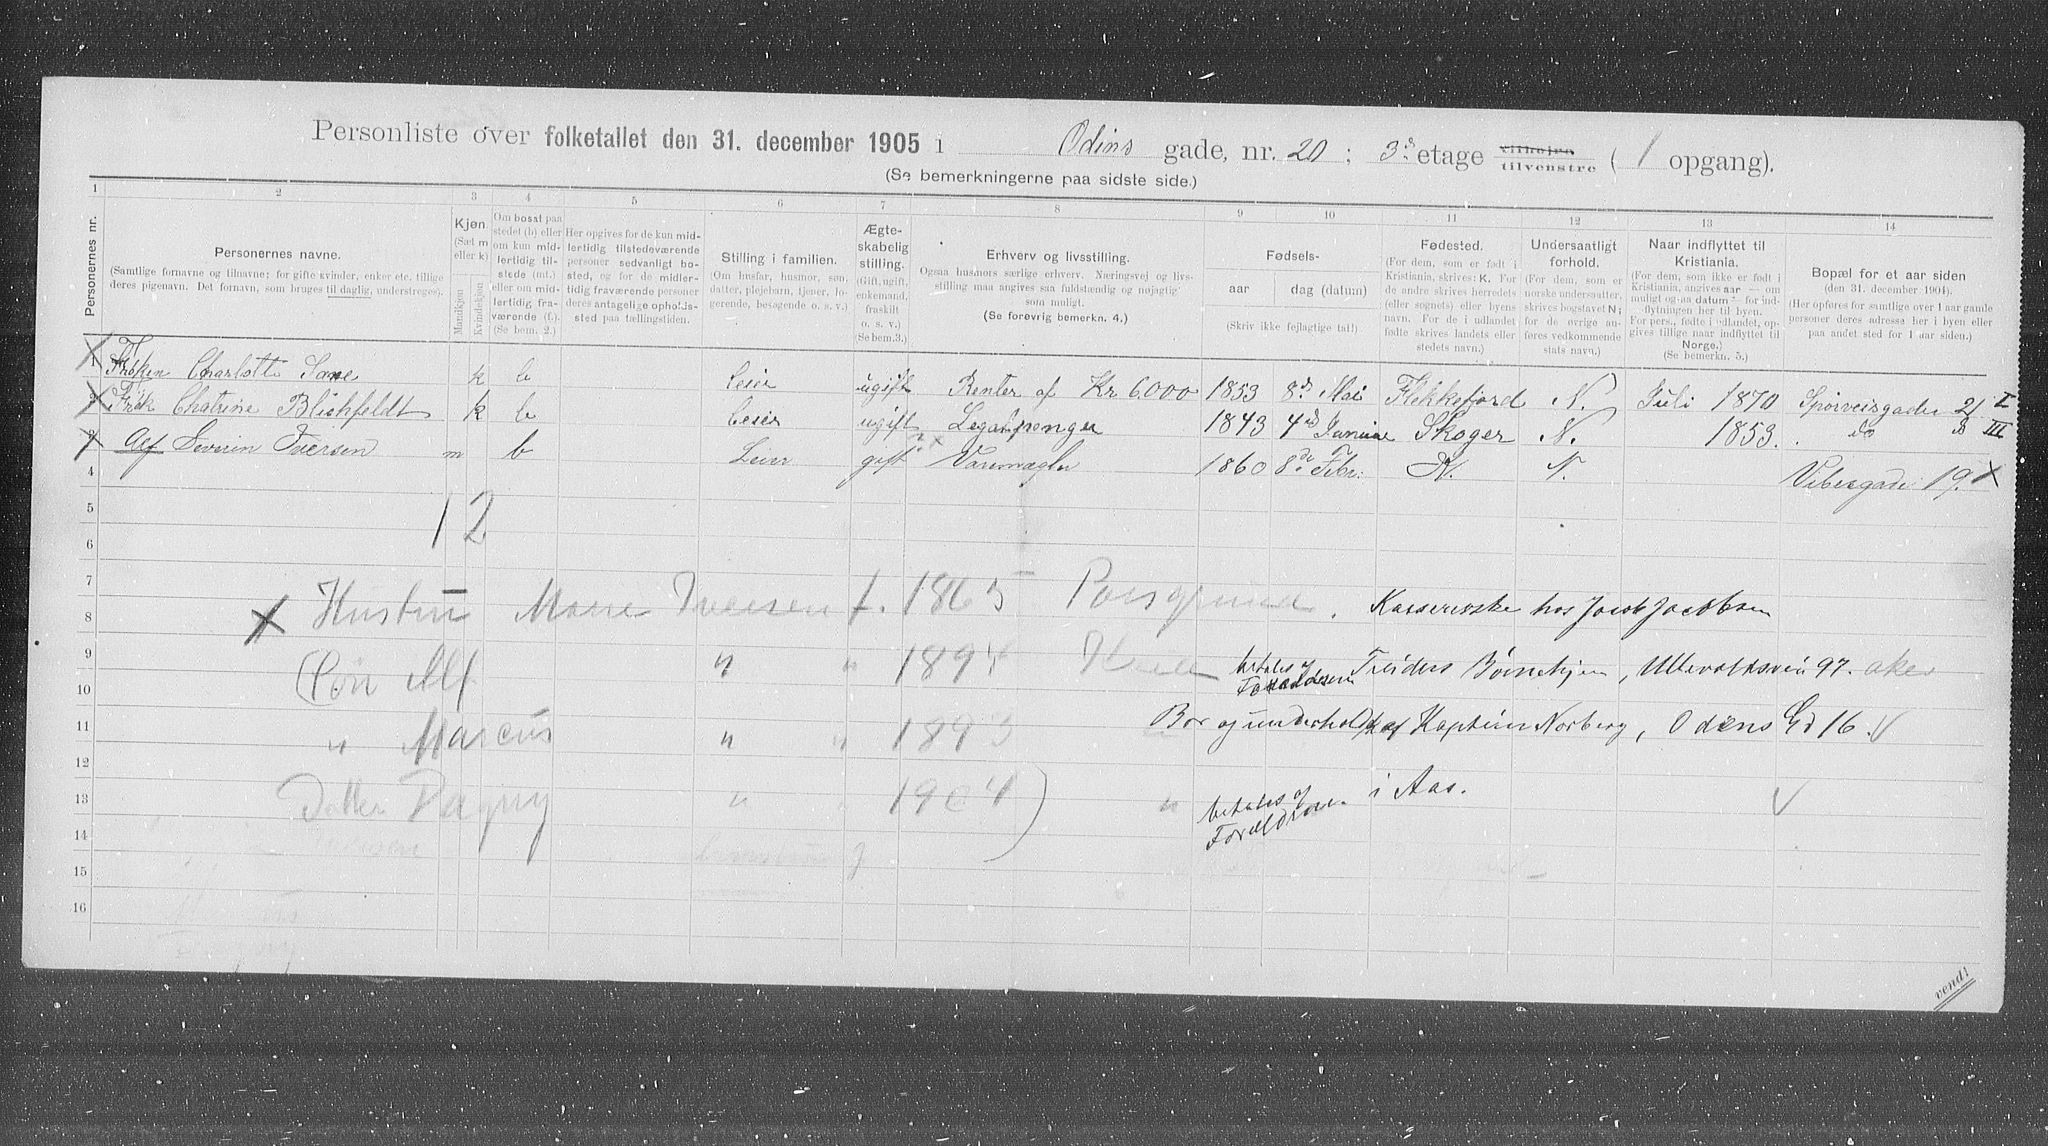 Personliste over folketallet den 31. december 1905 i Odins gade, nr. 20 ; 3dе etage tilhøire tilvenstre ( 1 opgang).
(Se bemerkningerne paa sidste side.)
1 2 3 4 5 6 7 8 9 10 11 12 13 14
Personernes nr.
Personernes navne.
(Samtlige fornavne og tilnavne; for gifte kvinder, enker etc. tillige
deres pigenavn. Det fornavn, som bruges til daglig, understreges).
Kjøn.
(Sæt m
eller k)
Mandkjøn
Kvindekjøn
Om bosat paa
stedet (b) eller
om kun mid-
lertidig til-
stede (mt.)
eller om mid-
lertidig fra-
værende (f.)
(Se bem. 2.)
Her opgives for de kun mid-
lertidig tilstedeværende
personer sedvanligt bo-
sted, og for de midler-
tidig fraværende personer
deres antagelige opholds-
sted paa tællingstiden.
Stilling i familien.
(Om husfar, husmor, søn,
datter, plejebarn, tjener, lo-
gerende, besøgende o. s. v.)
Ægte-
skabelig
stilling.
(Gift, ugift,
enkemand,
fraskilt
o. s. v.)
(Se bem. 3.)
Erhverv og livsstilling.
Ogsaa husmors særlige erhverv. Nærings vei og livs-
stilling maa angives saa fuldstændig og nøjagtig
som muligt.
(Se forøvrig bemerkn. 4.)
Fødsels-
aar
dag (datum)
(Skriv ikke fejlagtige tal!)
Fødested.
(For dem, som er født i
Kristiania, skrives: K. For
de andre skrives herredets
(eller sognets) eller byens
navn. For de i udlandet
fødte skrives landets eller
stedets navn.)
Undersaatligt
forhold.
(For dem, som er
norske undersaatter,
skrives bogstavet N;
for de øvrige an-
føres vedkommende
stats navn.)
Naar indflyttet til
Kristiania.
(For dem, som ikke er født i
Kristiania, angives aar — om
muligt og saa datum — for ind-
flytningen her til byen.
For pers., fødte i udlandet, op-
gives tillige naar indflyttet til
Norge.)
(Se bemerkn. 5.)
Bopæl for et aar siden
(den 31. december 1904).
(Her opføres for samtlige over 1 aar gamle
personer deres adresse her i byen eller
paa andet sted for 1 aar siden.)
1 Frøken Charlotte k b Leier ugift Renter af Kr 6000 1853 8de Mai Flekkefjord N. Juli 1870 Sporveisgaden 21 I
2 Frøk Chatrine Blichfeldt k b Leier ugift Legatpenger 1843 4de Januar Skoger N. 1853. do III
3 Alf Severin Iversen m b Leier gift Varemægler 1860 8de Febr: K. N. Vibesgade 19.
4
5
12
6
7
Hustru Marie Iversen f. 1865 Porsgrund. hos Jacob Jacobsen
8
9
(Søn Alf " " 1894 betales af Forældrene Børnehjem, Ullevoldsvei 97. aker
10
11
" Marcus " " 1893 Bor og underholdes af Kaptein Norberg, Odens Gd 16.
12
13
Datter Dagny " " 1904) " betales af Forældrene. i Aas.
14
15
16
vend!